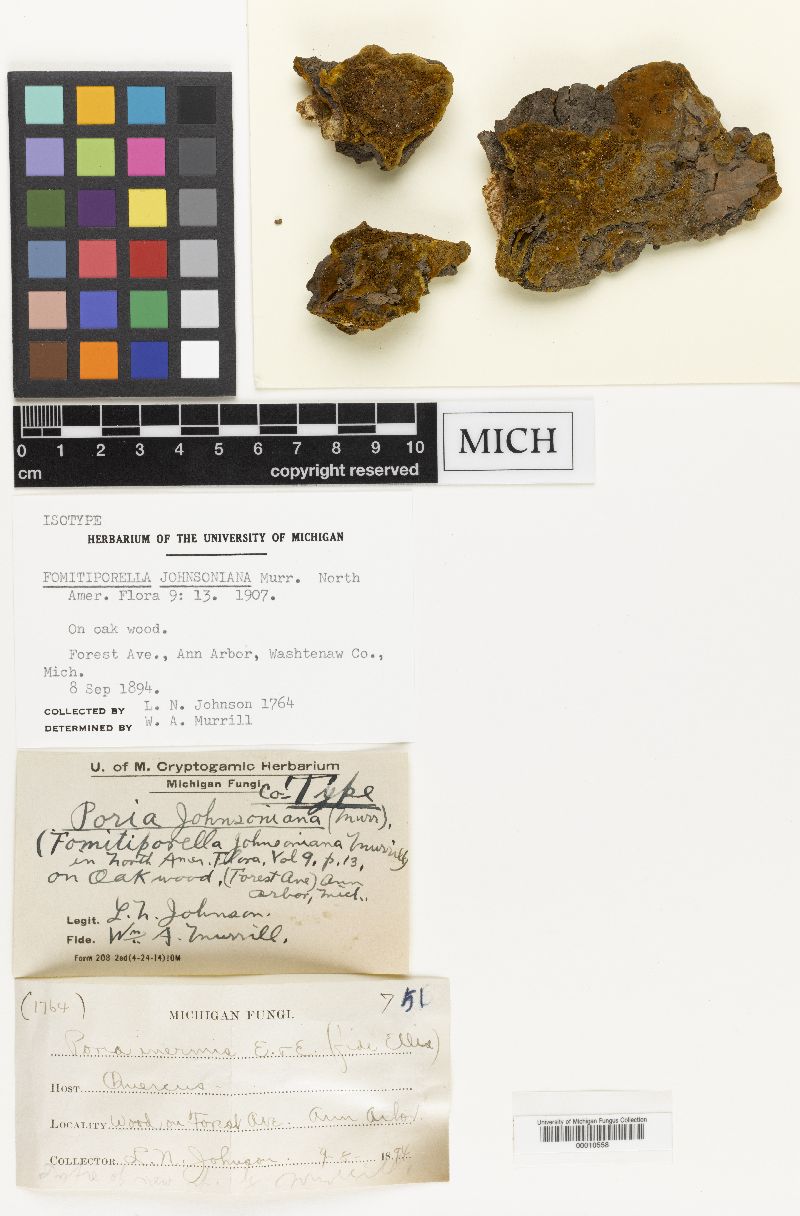 0 1 2 3 4 5 6 7 8 9 10
cm copyright reserved
MICH
ISOTYPE
HERBARIUM OF THE UNIVERSITY OF MICHIGAN
FOMITIPORELLA JOHNSONIANA Murr. North
Amer. Flora 9: 13. 1907.
On oak wood.
Forest Ave., Ann Arbor, Washtenaw Co.,
Mich.
8 Sep 1894.
COLLECTED BY L. N. Johnson 1764
DETERMINED BY W. A. Murrill
U. of M. Cryptogamic Herbarium
Michigan Fungi
Co-Type
Poria Johnsoniana (Murr),
(Fomitiporella Johnsoniana Murrill)
in North Amer. Flora, Vol 9. p. 13,
on Oak wood, (Forest Ave) Ann
Arbor, Mich..
Legit. L. N. Johnson.
Fide. Wm A. Murrill.
Form 208 2ed(4-24-14)10M
(1764) 751
MICHIGAN FUNGI.
Poria inermis E. & E. (fide Ellis)
HOST Quercus
LOCALITY Wood on Forest Ave. Ann Arbor.
COLLECTOR L. N. Johnson 9-8- 1894
University of Michigan Fungus Collection
00010558